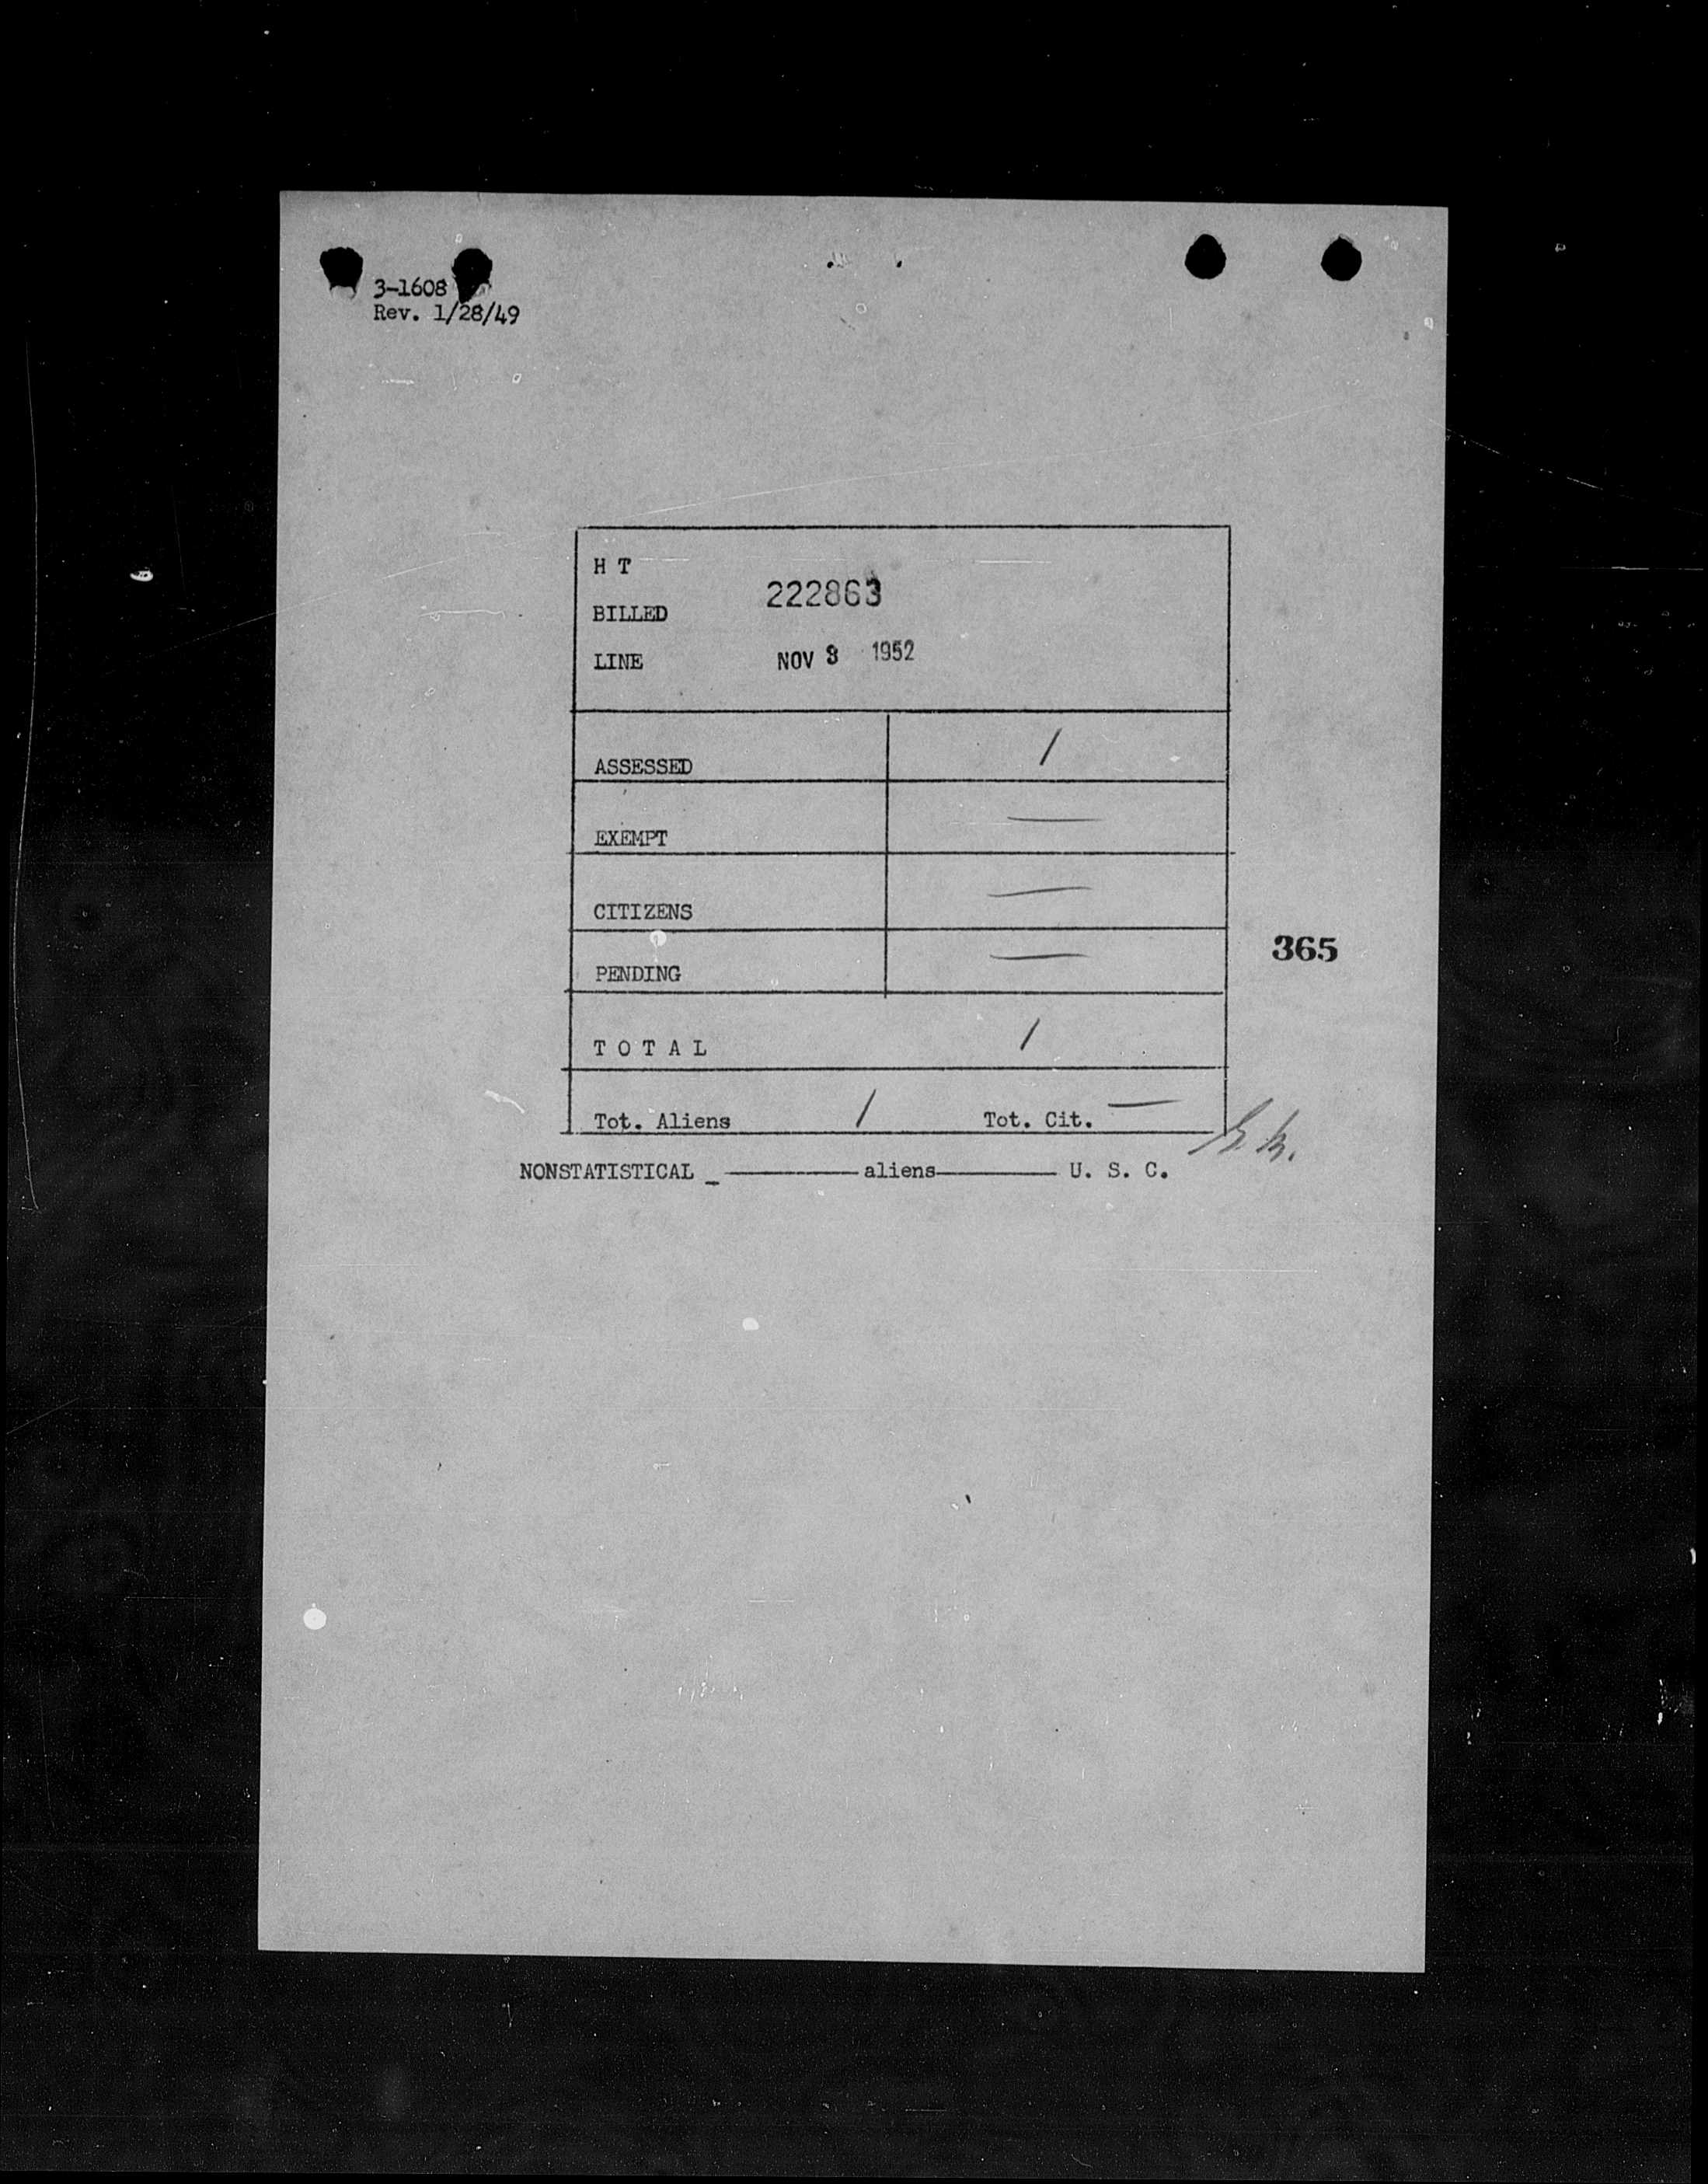 3-1608
Rev. 1/28/49
H T
222863
BILLED
LINE NOV 3 1952
ASSESSED /
EXEMPT —
CITIZENS —
365
PENDING —
T O T A L /
Tot. Aliens / Tot. Cit. —
NONSTATISTICAL _ ———— aliens ———— U. S. C.